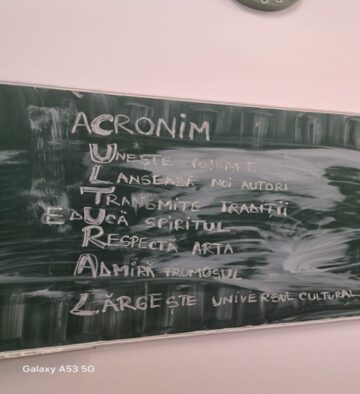 ACRONIM
UNEȘTE
LANSEAZĂ NOI AUTORI
TRANSMITE TRADIȚII
EDUCĂ SPIRITUL
RESPECTĂ ARTA
ADMIRĂ FRUMOSUL
LĂRGEȘTE UNIVERSUL CULTURAL
Galaxy A53 5G